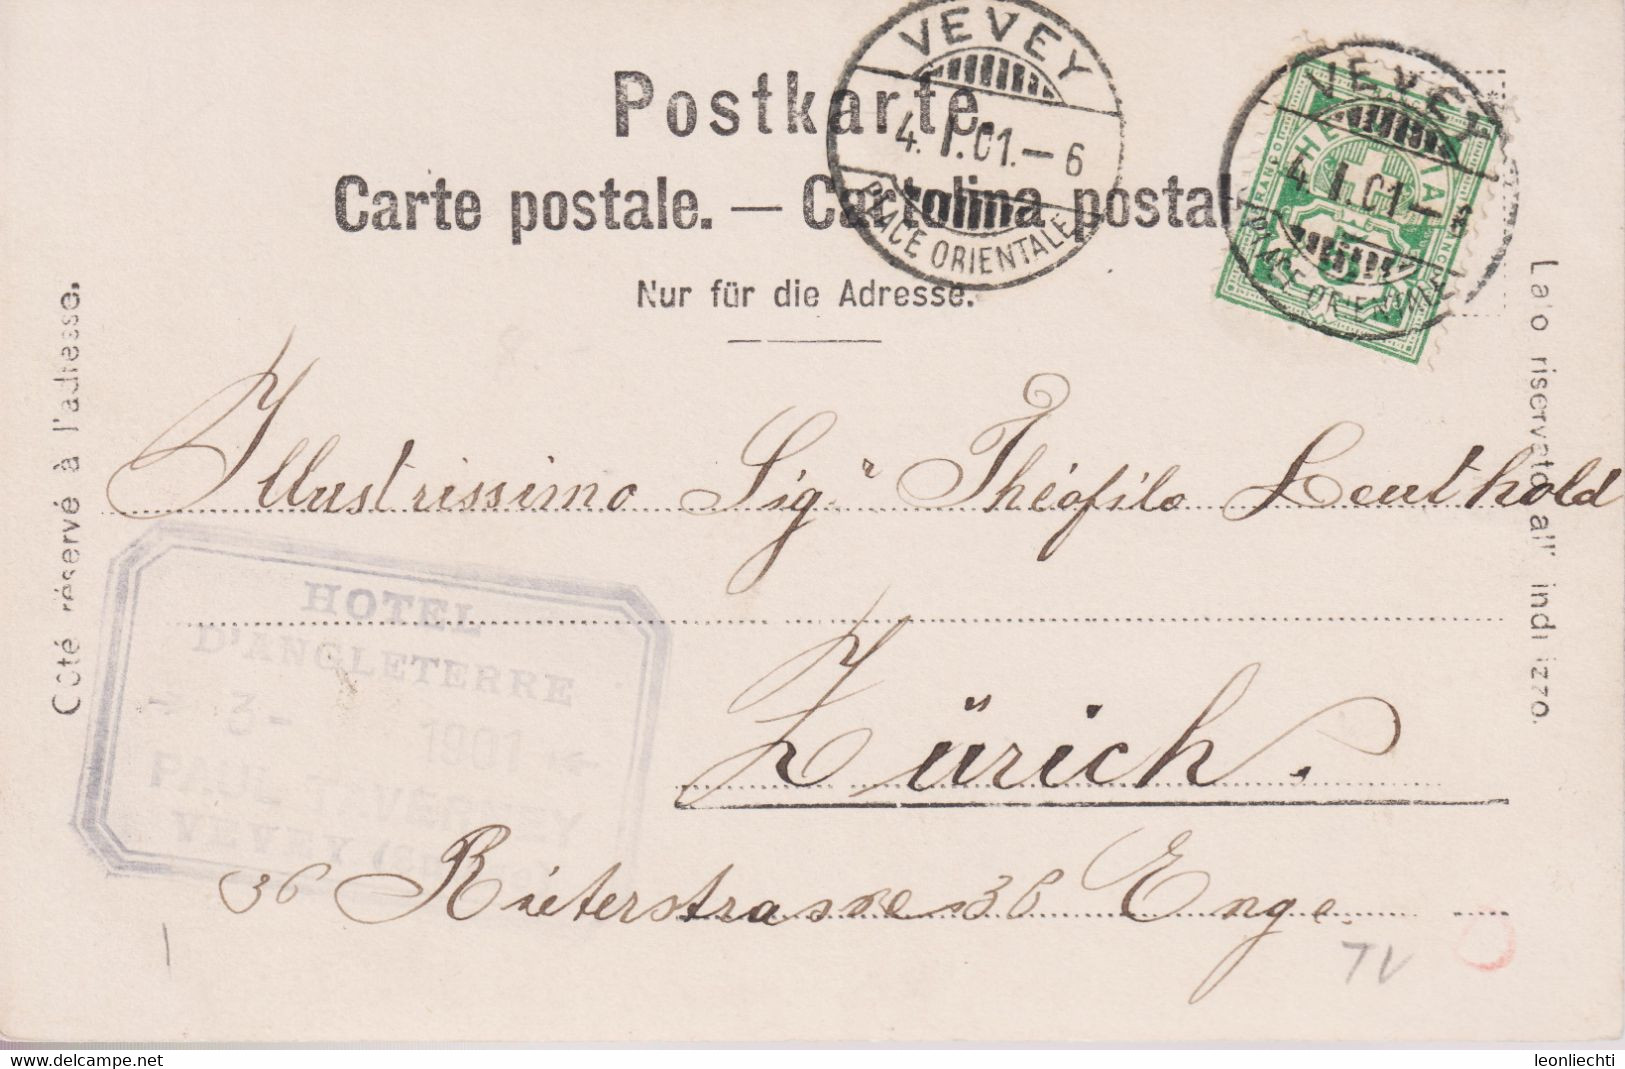 Postkarte.
Carte postale. — Cartolina postale
Nur für die Adresse.
Côté réservé à l'adresse.
Lato riservato all' indirizzo.
VEVEY
4. I. 01. – 6
PLACE ORIENTALE
VEVEY
4. I. 01 –
PLACE ORIENTALE
HELVETIA
FRANCO
FRANCO
5
Illustrissimo Sigr Théofilo Leuthold
Zürich.
36 Rieterstrasse 36 Enge.
HOTEL
D'ANGLETERRE
3 - 1901
PAUL
VEVEY
TV
www.delcampe.net
leonliechti